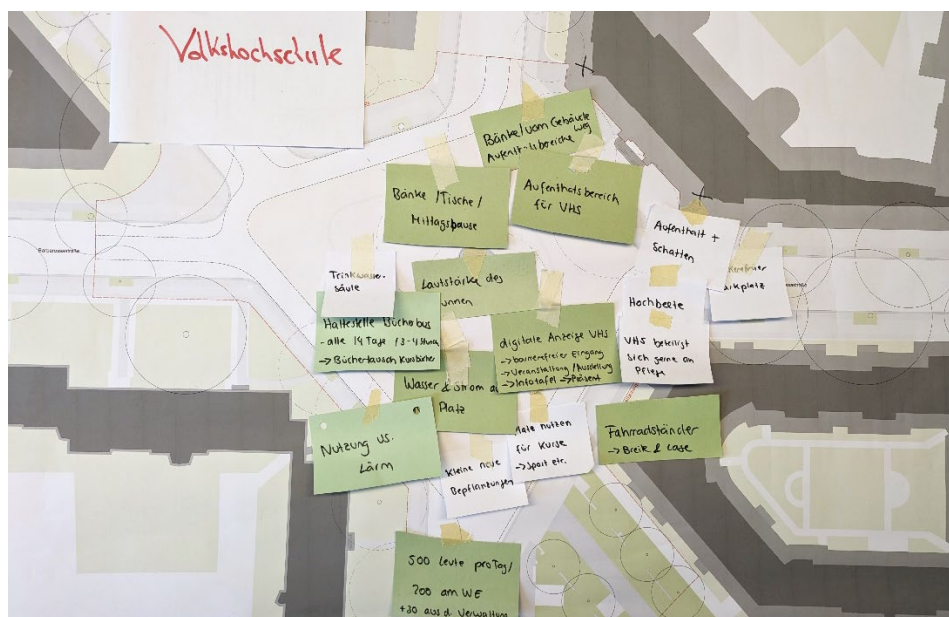 Volkshochschule
Bänke/vom Gebäude weg
Aufenthaltsbereiche
Bänke /Tische/
Mittagspause
Aufenthaltsbereich
für VHS
Aufenthalt +
Schatten
Trinkwasser-
säule
Lautstärke des
Hochbeete
VHS beteiligt
sich gerne an
Pflege
Haltestelle Bücherbus
- alle 14 Tage / 3-4 Stunden
→ Büchertausch Kursbücher
digitale Anzeige VHS
→ barrierefreier Eingang
→ Veranstaltung / Ausstellung
→ Infotafel → Präsent
Wasser & Strom
Platz
Nutzung vs.
Lärm
Kleine neue
Bepflanzungen
nutzen
für Kurse
→ Sport etc.
Fahrradständer
→ Breite & Lage
500 Leute pro Tag/
200 am WE
+30 aus d. Verwaltung